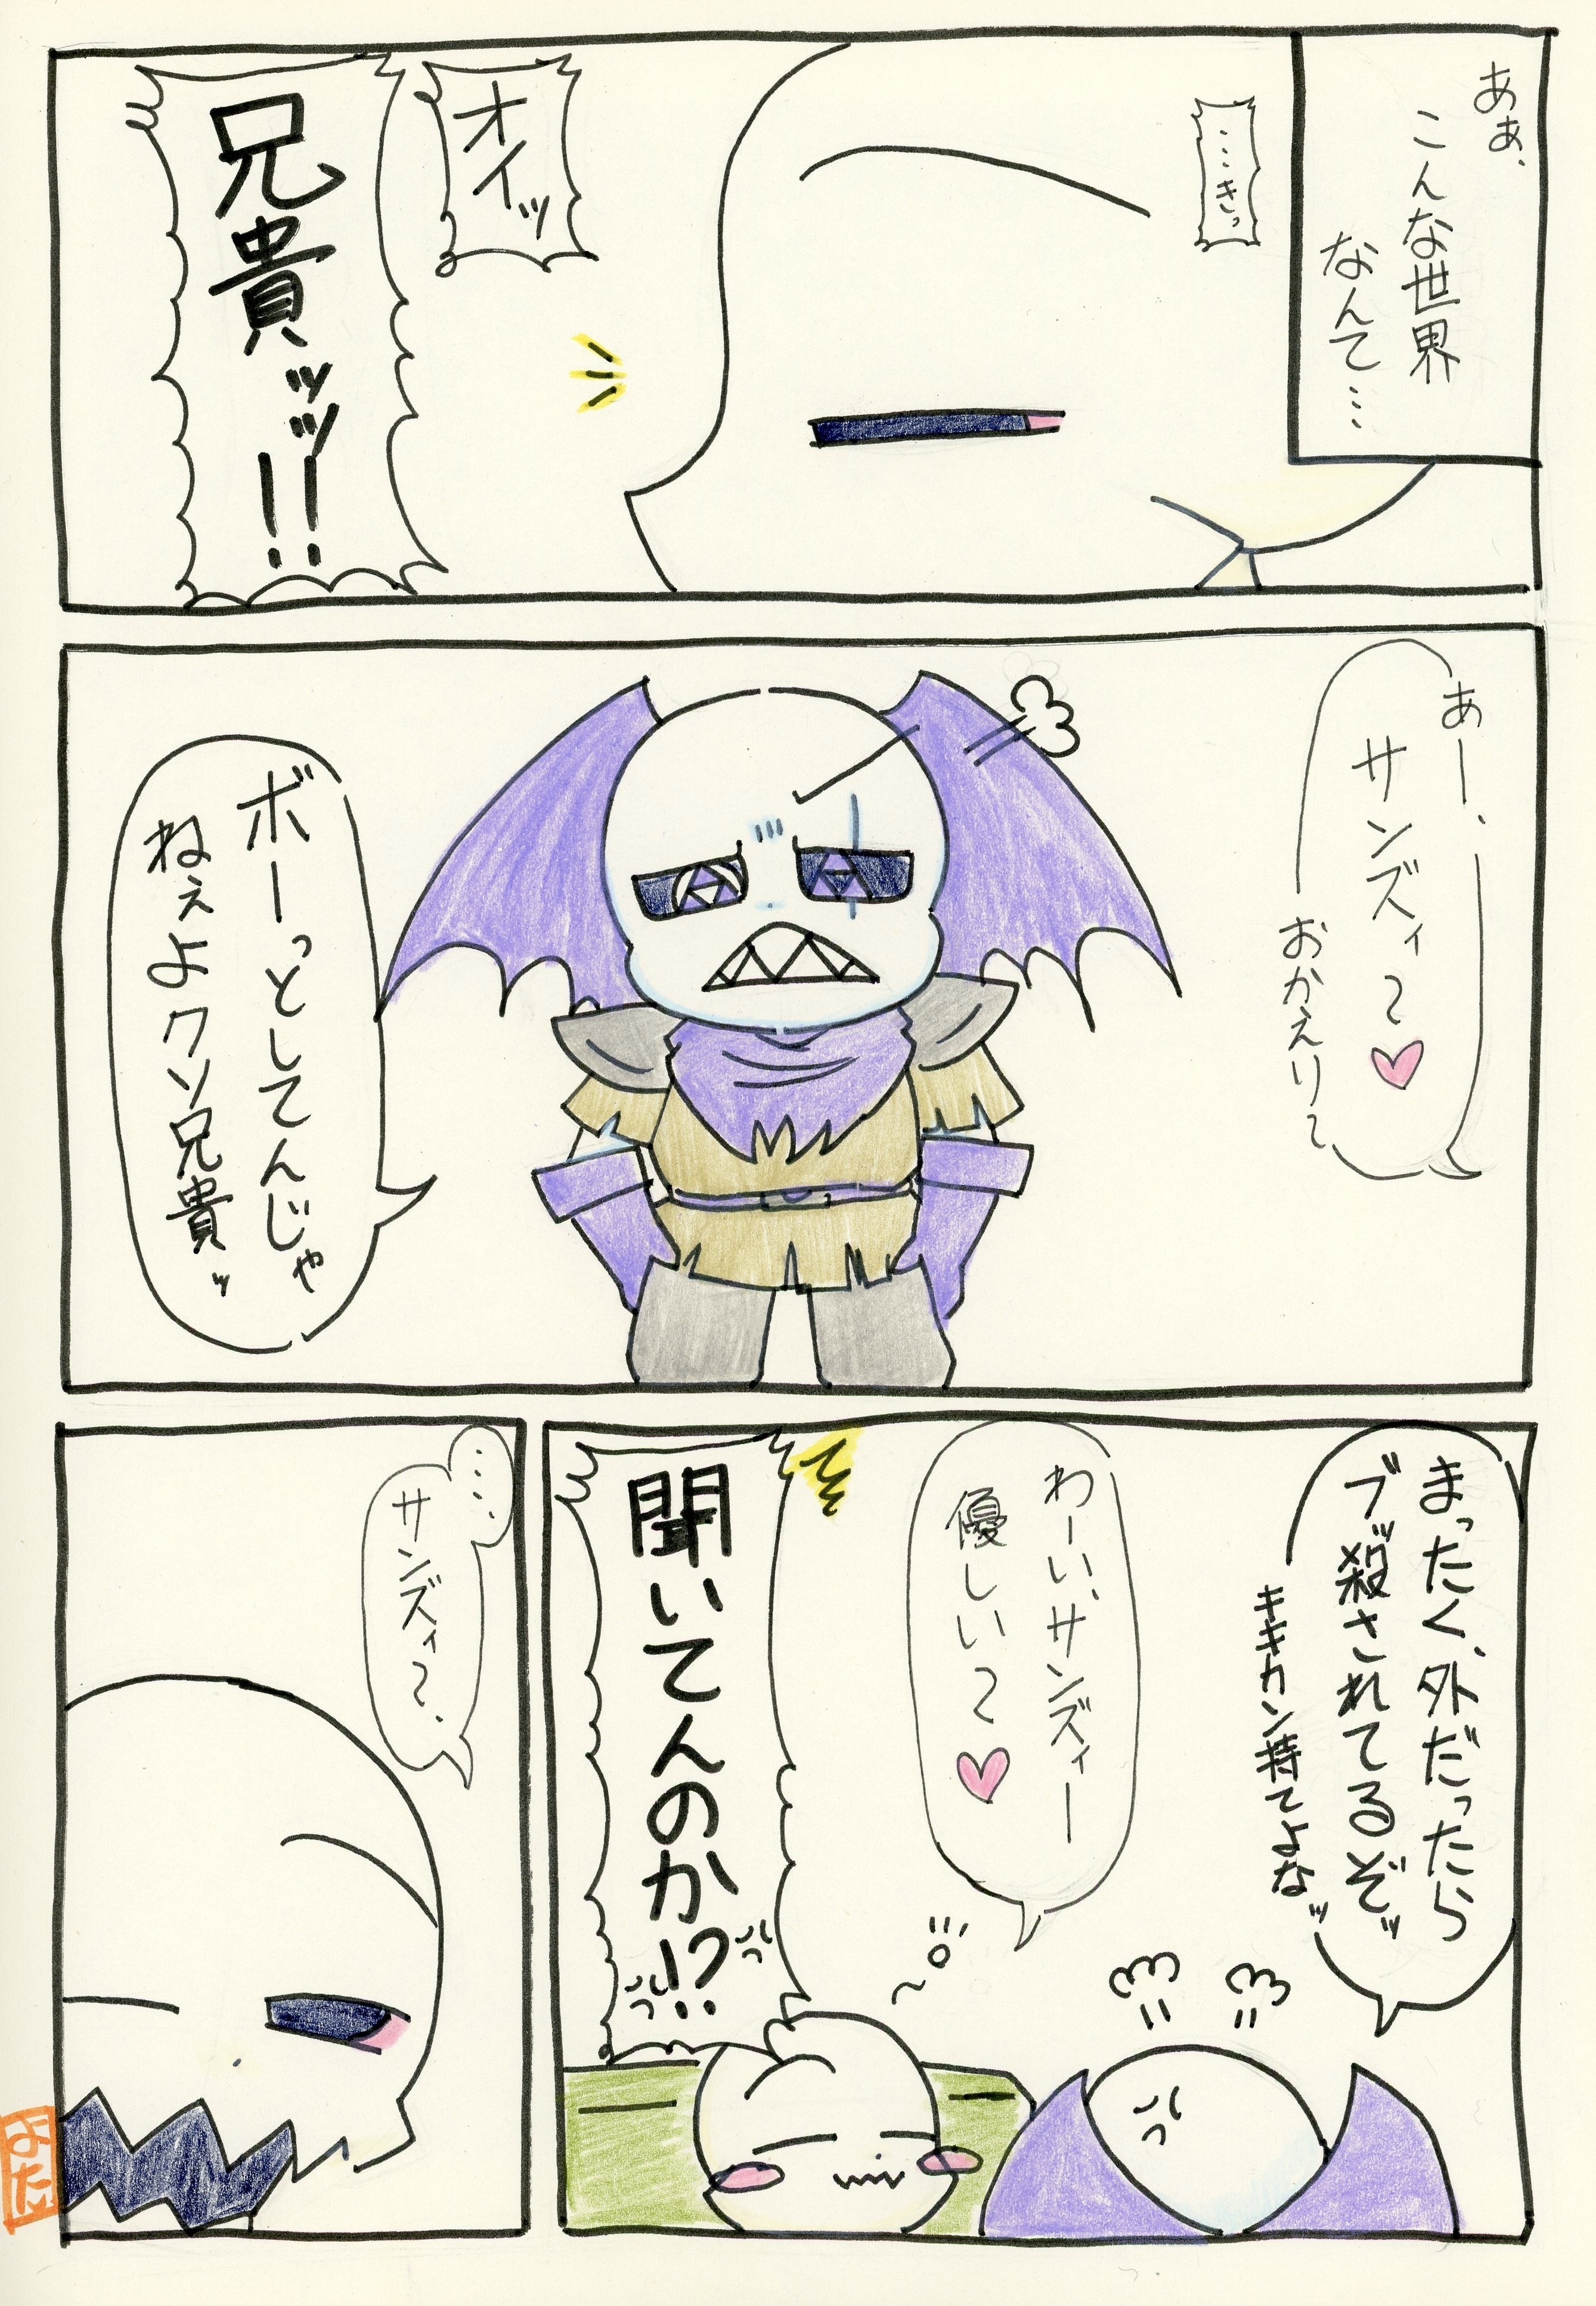 あぁ、
こんな世界
なんて…
…きっ
オイッ
兄貴ッッ!!
あー、
サンズィ～♥
おかえり～
ボーっとしてんじゃ
ねぇよクソ兄貴ッ
まったく、外だったら
ブッ殺されてるぞッ
キキカン持てよなッ
わーい、サンズィー
優しい～♥
聞いてんのか!?
…。
サンズィ～。